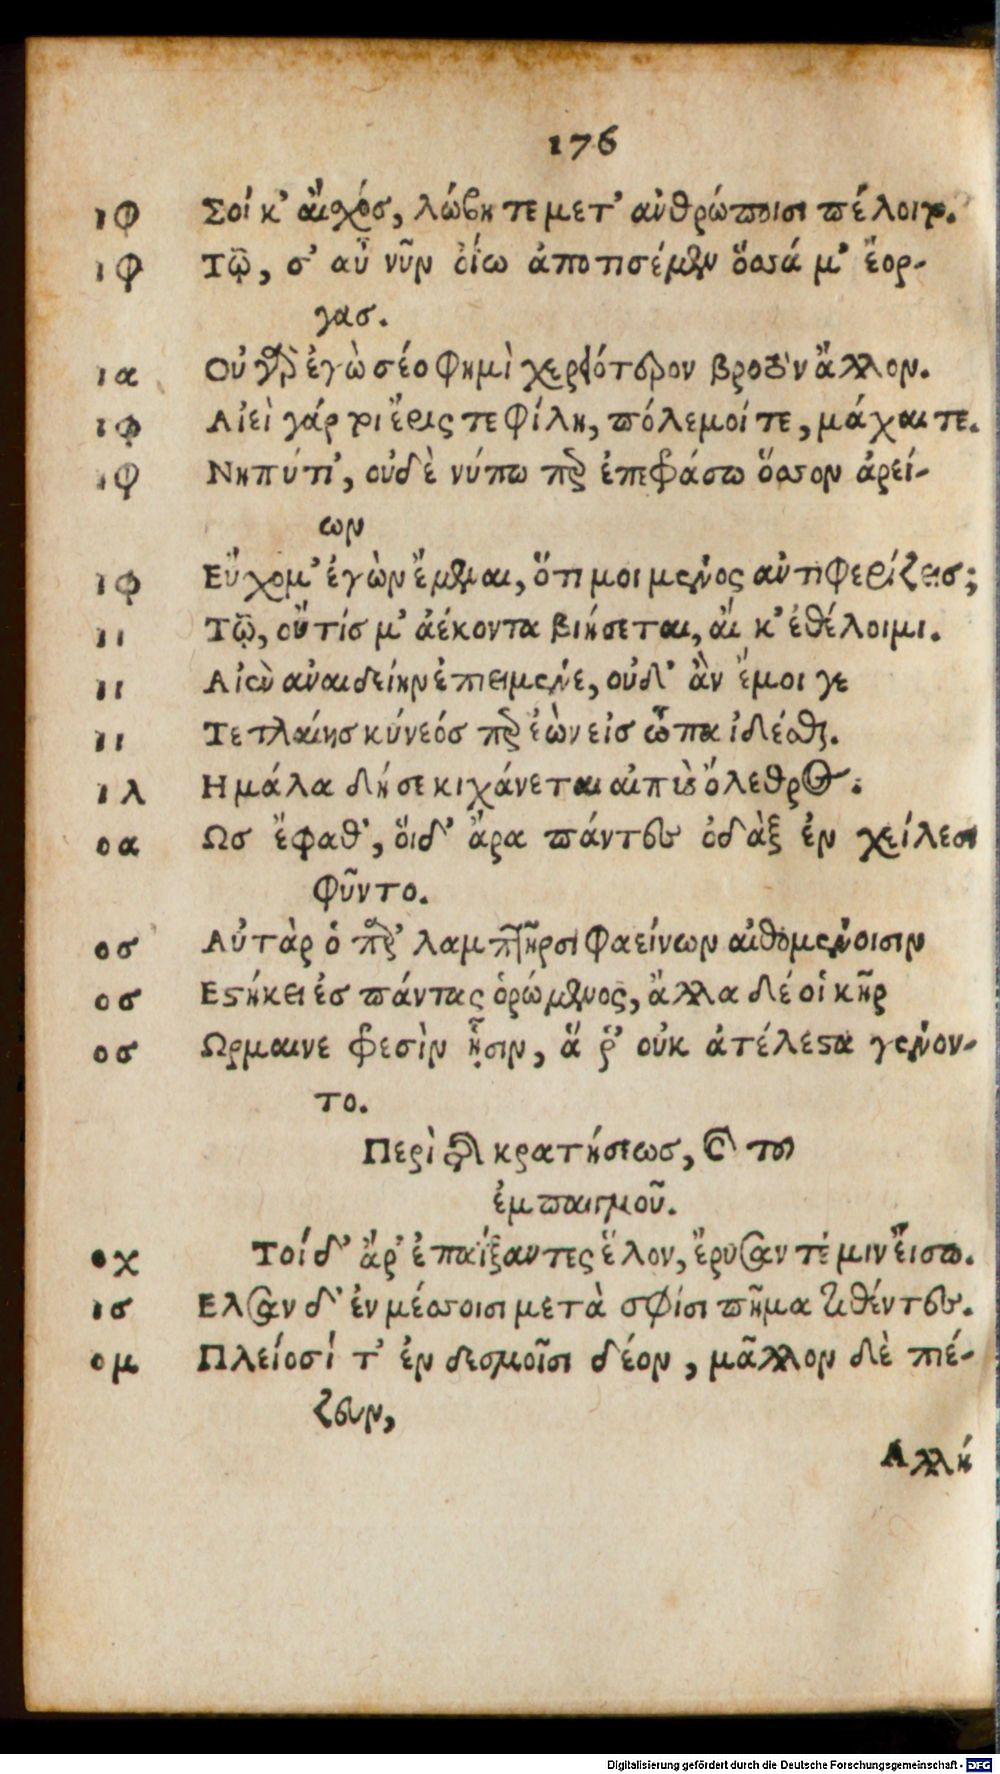 176
ιφ Σοί κ' αἶσχόσ, λώβη τε μετ' ἀνθρώποισι πέλοιτο.
ιφ Τῷ, σ' αὖ νῦν ὀΐω ἀποτισέμεν ὅσσά μ' ἔορ-
γασ.
ια Οὐ γὰρ ἐγὼ σέο φημὶ χερειότερον βροτὸν ἄλλον.
ιφ Αἰεὶ γάρ τοι ἔρις τε φίλη, πόλεμοί τε, μάχαι τε.
ιφ Νηπύτι', οὐδὲ νύπω περ ἐπεφράσω ὅσσον ἀρεί-
ων
ιφ Εὔχομ' ἐγὼν ἔμεναι, ὅτι μοι μένος ἀντιφερίζεισ;
ιι Τῷ, οὔτίσ μ' ἀέκοντα βιήσεται, αἴ κ' ἐθέλοιμι.
ιι Αἰὲν ἀναιδείην ἐπιειμένε, οὐδ' ἂν ἔμοι γε
ιι Τετλαίησ κύνεόσ περ ἐὼν εἰσ ὦπα ἰδέσθαι.
ιλ Η μάλα δή σε κιχάνεται αἰπὺς ὄλεθρος.
οα Ωσ ἔφαθ', ὅιδ' ἄρα πάντες ὀδὰξ ἐν χείλεσι
φῦντο.
οσ Αὐτὰρ ὁ παρ' λαμπτῆρσι φαείνων αἰθομένοισιν
οσ Εστήκει ἐσ πάντας ὁρώμενος, ἄλλα δέ οἱ κῆρ
οσ Ωρμαινε φρεσὶν ᾗσιν, ἅ ῥ' οὐκ ἀτέλεστα γένον-
το.
Περὶ τῆς κρατήσεωσ, καὶ τοῦ
ἐμπαιγμοῦ.
οχ Τοί δ' ἄρ' ἐπαίξαντες ἕλον, ἔρυσαν τέ μιν εἴσω.
ισ Ελσαν δ' ἐν μέσσοισι μετὰ σφίσι πῆμα τιθέντες.
ομ Πλείοσί τ' ἐν δεσμοῖσι δέον, μᾶλλον δὲ πιέ-
ζευν,
Αλλή
Digitalisierung gefördert durch die Deutsche Forschungsgemeinschaft - DFG